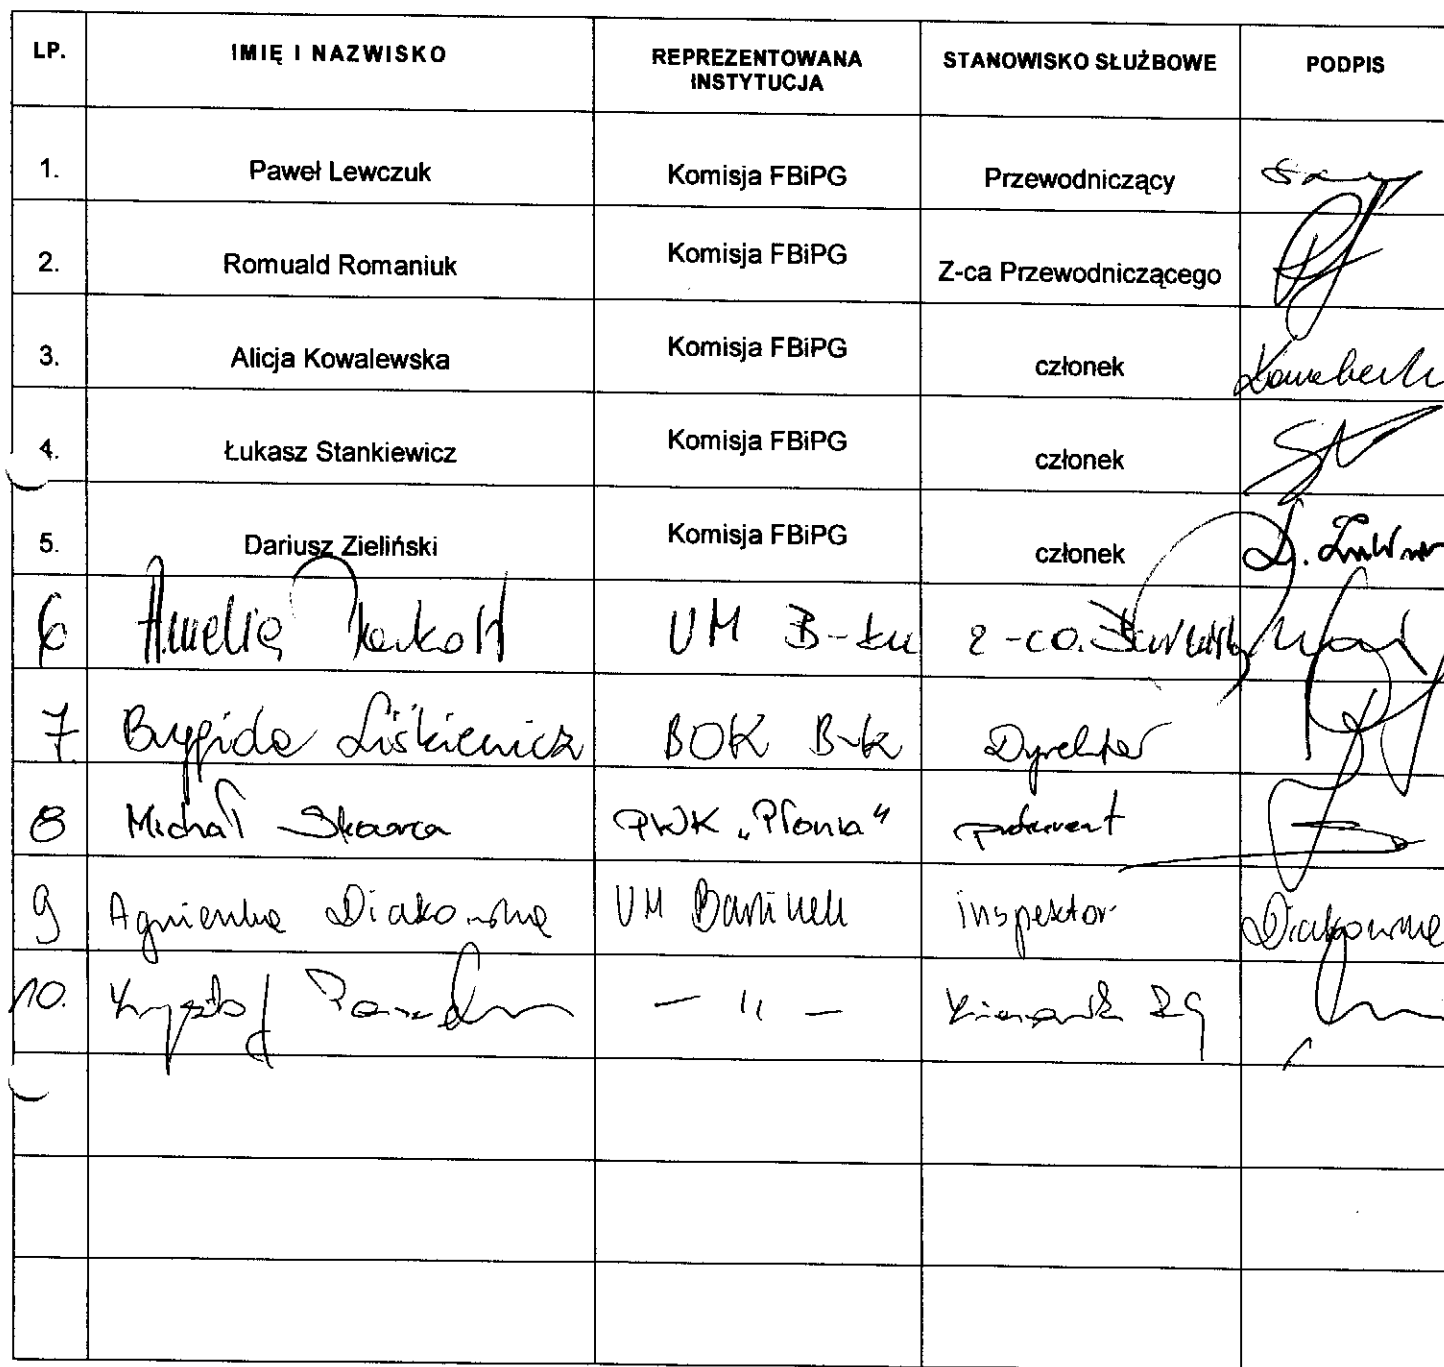 LP. IMIĘ I NAZWISKO REPREZENTOWANA INSTYTUCJA STANOWISKO SŁUŻBOWE PODPIS
1. Paweł Lewczuk Komisja FBiPG Przewodniczący
2. Romuald Romaniuk Komisja FBiPG Z-ca Przewodniczącego
3. Alicja Kowalewska Komisja FBiPG członek
4. Łukasz Stankiewicz Komisja FBiPG członek
5. Dariusz Zieliński Komisja FBiPG członek D.
6 Amelia UM B-ku z-ca
7. Brygida Liśkiewicz BOK B-k Dyrektor
8 Michał Skaora PWK „Płonia" prokurent
9 Agnieszka Diakowska UM Barlinek inspektor Diakowska
10. Krzysztof — " — Kierownik